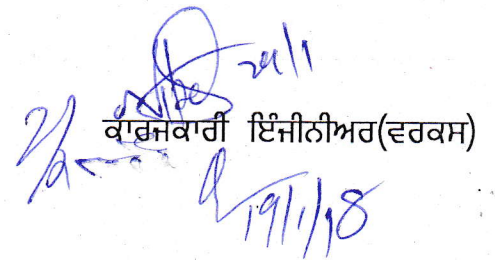 29/1
ਕਾਰਜਕਾਰੀ ਇੰਜੀਨੀਅਰ(ਵਰਕਸ)
19/1/18